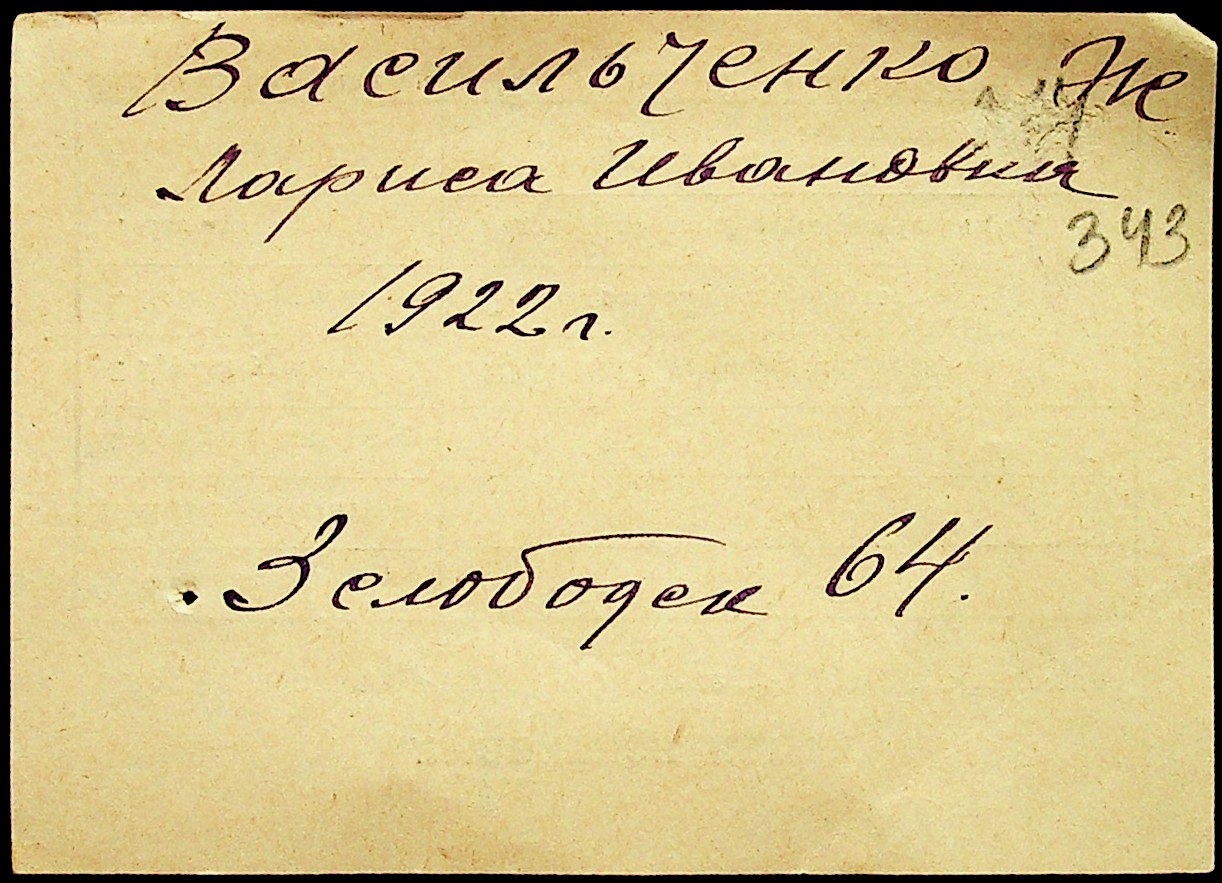 Васильченко Ж
Лариса Ивановна
343
1922 г.
3 слободск 64.